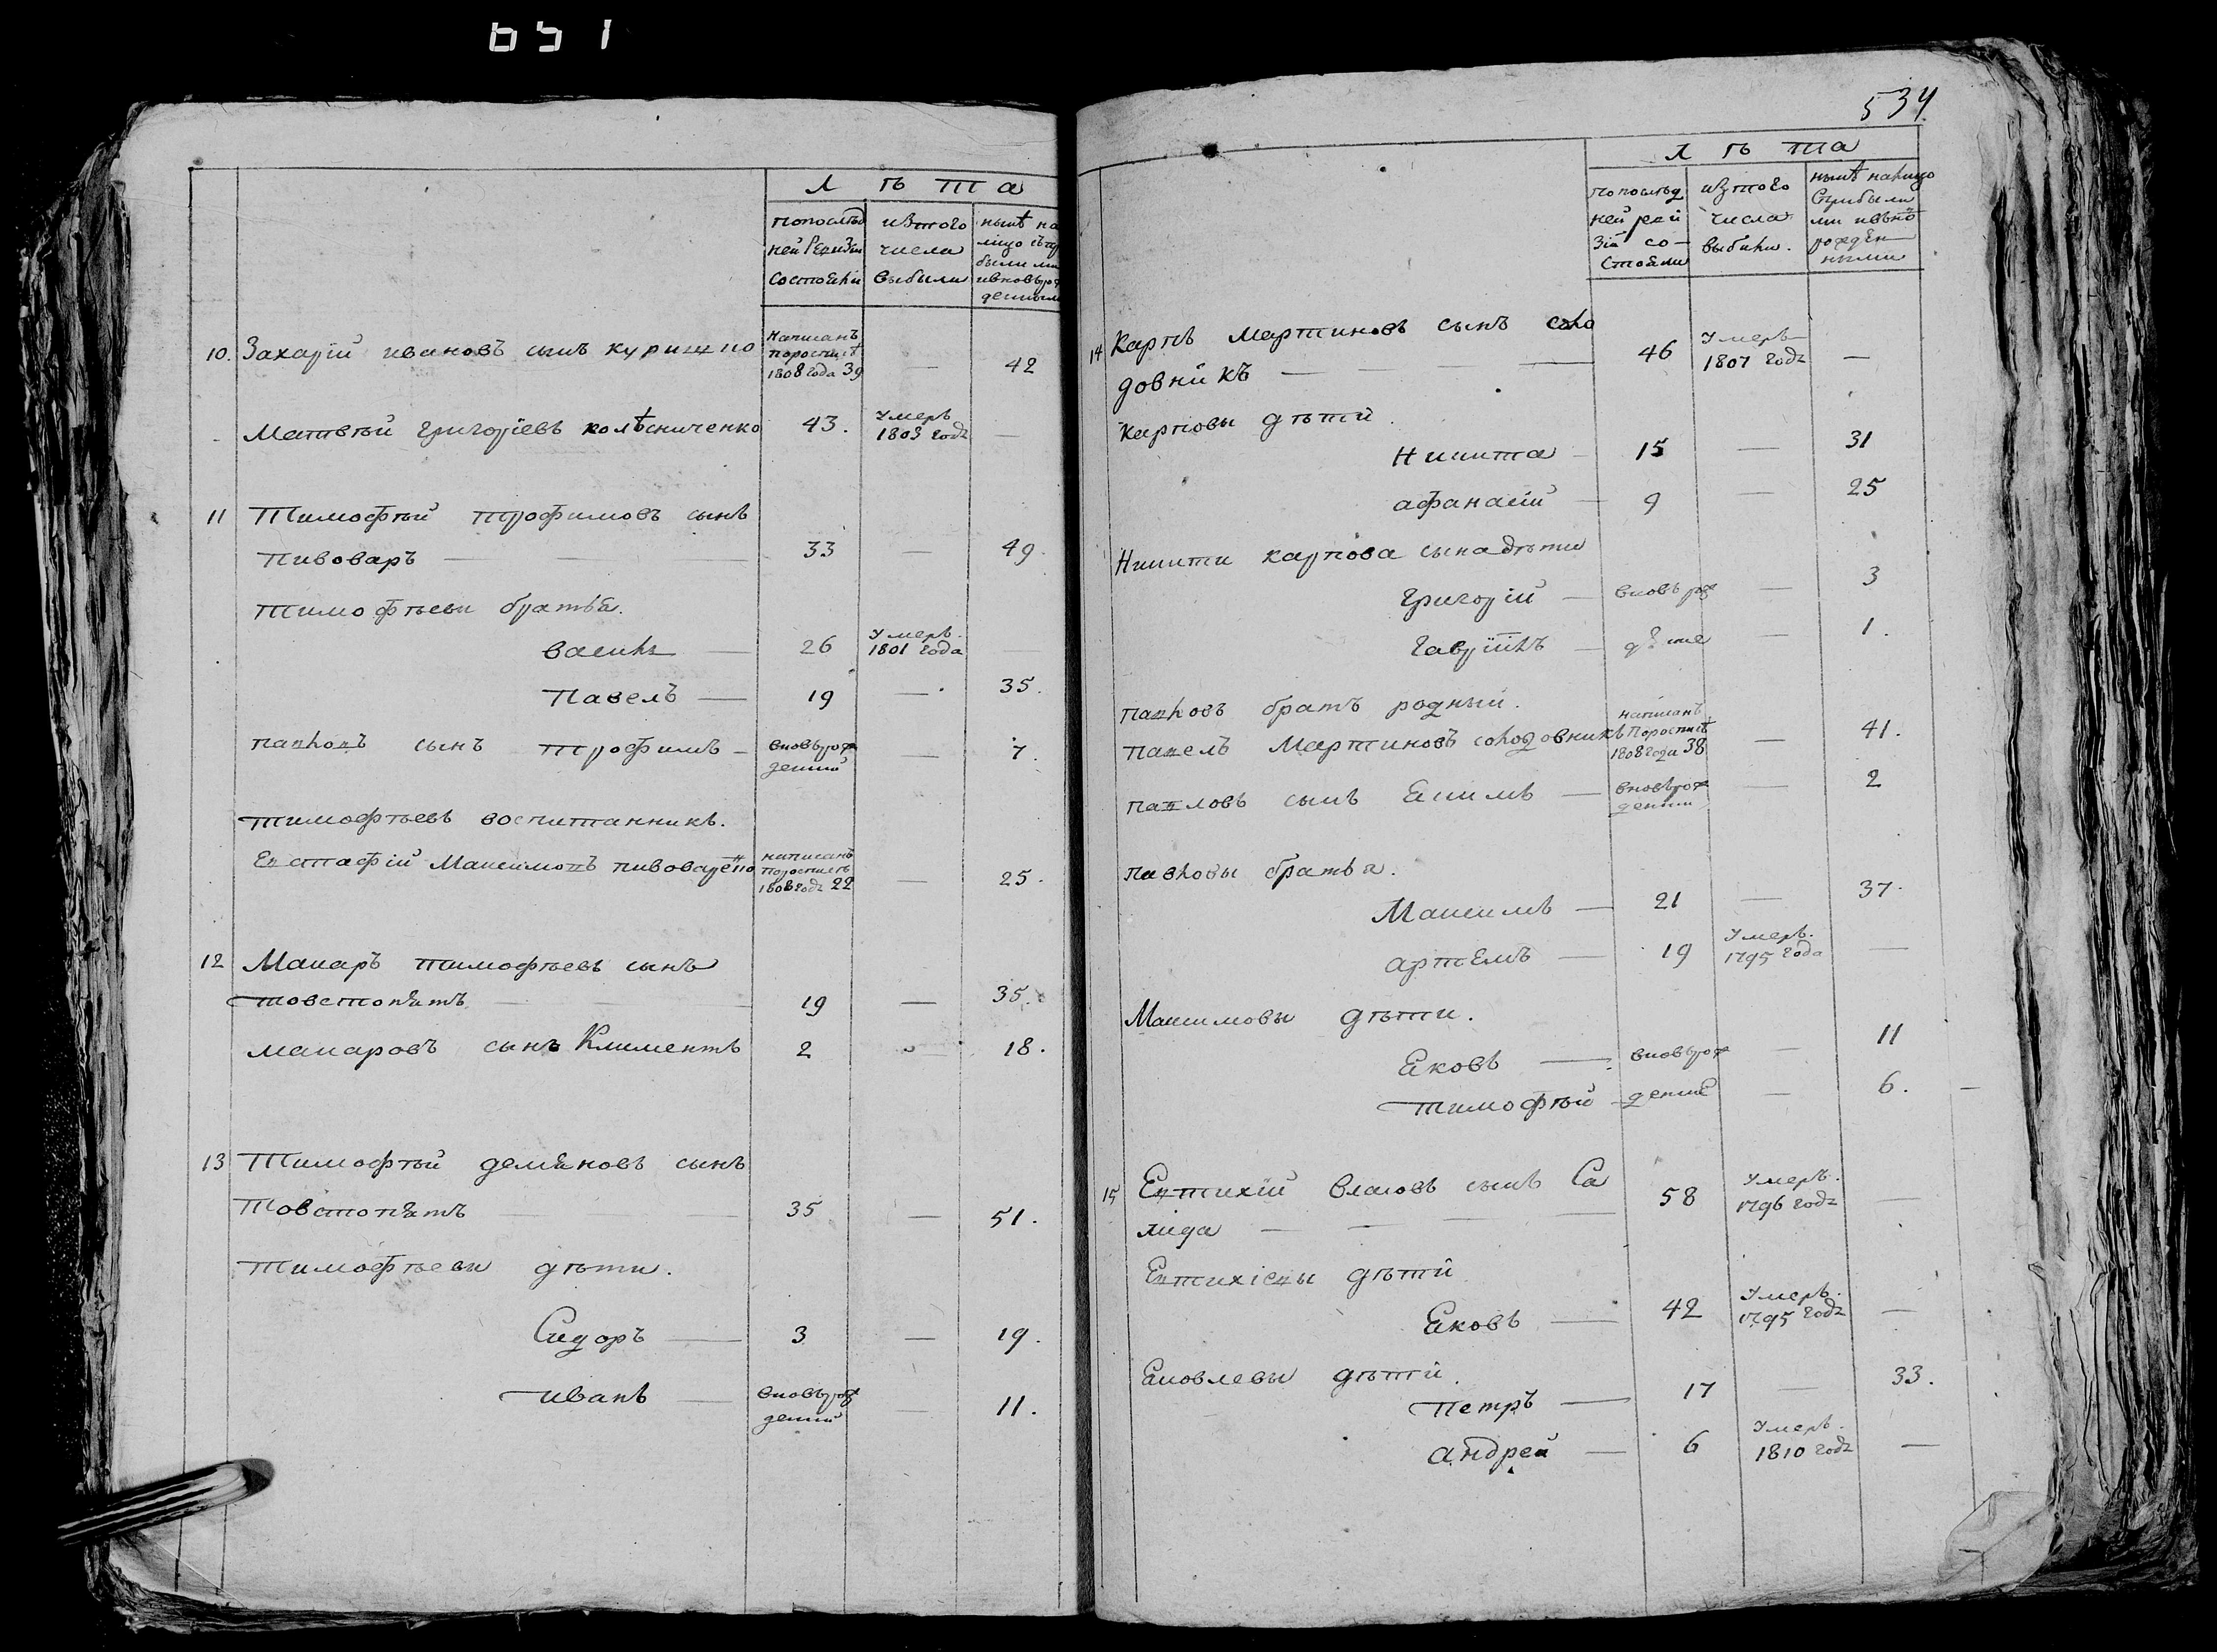 651
Л ѣ т а
попослѣд ней Ревизіи состояли
изтого числа выбыли
нынѣ на лицо съ при были ми ивновьрож денными
10. Захарій ивановъ сынъ курищко написанъ поросписѣ 1808 года 39 — 42
Матвѣй григоріевъ колѣсниченко 43. Умеръ 1803 годъ —
11 Тимофѣй трофимовъ сынъ
пивоваръ — 33 — 49.
тимофѣеви братья.
василь — 26 Умеръ. 1801 года
павелъ — 19 — 35.
павловъ сынъ трофимъ — вновьрож денній — 7.
тимофѣевъ воспитанникъ.
Евстафій Максимовъ пивоваренко написанъ поросписѣ 1808 годъ 22 — 25.
12 Макаръ тимофѣевъ сынъ
товстопятъ — 19 — 35.
макаровъ сынъ Климентъ 2 — 18.
13 Тимофѣй демяновъ сынъ
товстопятъ 35 — 51.
тимофѣеви дѣти.
Сидоръ — 3 — 19.
иванъ — вновьрож денній — 11.
534.
Л ѣ та
попослѣд ней реви зіи со- стояли
изтого числа выбыли.
нынѣ налицо Сприбылы ми ивьно рожден ными
14 Карпъ Мартиновъ сынъ соло
довникъ — 46 Умеръ 1807 годъ —
Карповы дѣти.
Никита — 15 — 31
афанасій — 9 — 25
Никити карпова сына дѣти
григорій — вновь рож — 3
гавріилъ — дение — 1.
павловъ братъ родный.
павелъ Мартиновъ солодовникъ написанъ поросписѣ 1808 года 38 — 41.
павловъ сынъ Якимъ — вновьрож денній — 2
павловы братья.
Максимъ — 21 — 37.
артемъ — 19 Умеръ. 1795 года —
Максимовы дѣти.
Яковъ — вновьрож — 11
тимофѣй — денние — 6.
15 Евтихій власовъ сынъ Са
лида — 58 Умеръ. 1796 годъ —
Евтихіевы дѣти
Яковъ — 42 Умеръ. 1795 годъ —
Яковлевы дѣти.
петръ — 17 — 33.
андрей — 6 Умеръ. 1810 годъ —